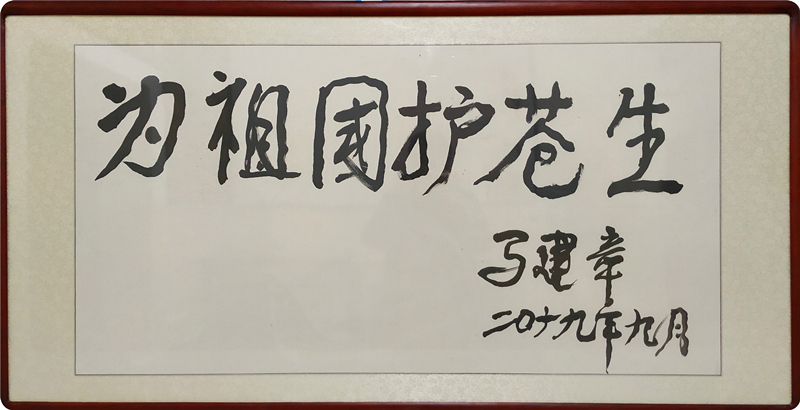 为祖国护苍生
马建章
二〇十九年九月